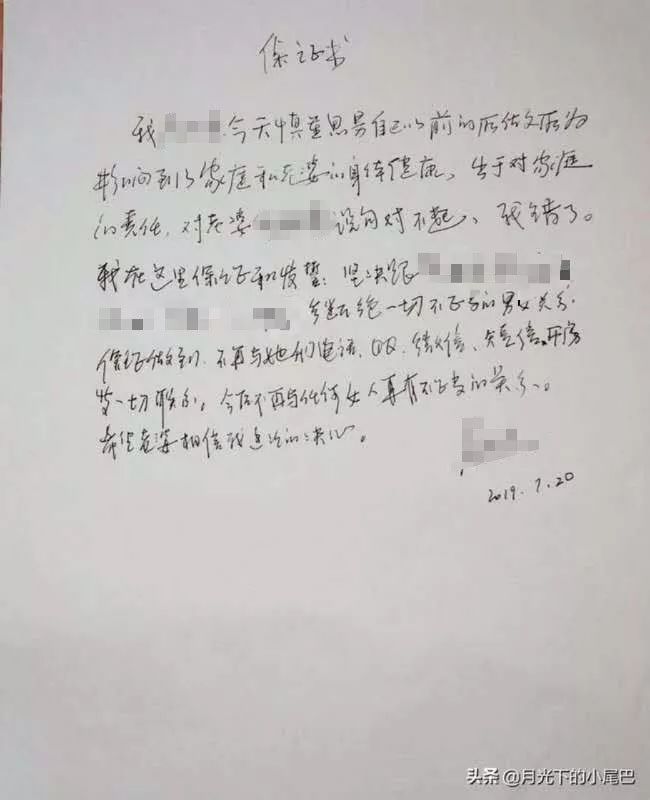 保证书
我 今天慎重思考自己以前的所做所为
影响到了家庭和老婆的身体健康、出于对家庭
的责任,对老婆 说句对不起、我错了。
我在这里保证和发誓:坚决跟
断绝一切不正当的男女关系.
保证做到,不再与她们电话、QQ、微信、短信、开房
等一切联系。今后不再与任何女人再有不正当的关系、
希望老婆相信我这次的决心。
2019.7.20
头条 @月光下的小尾巴